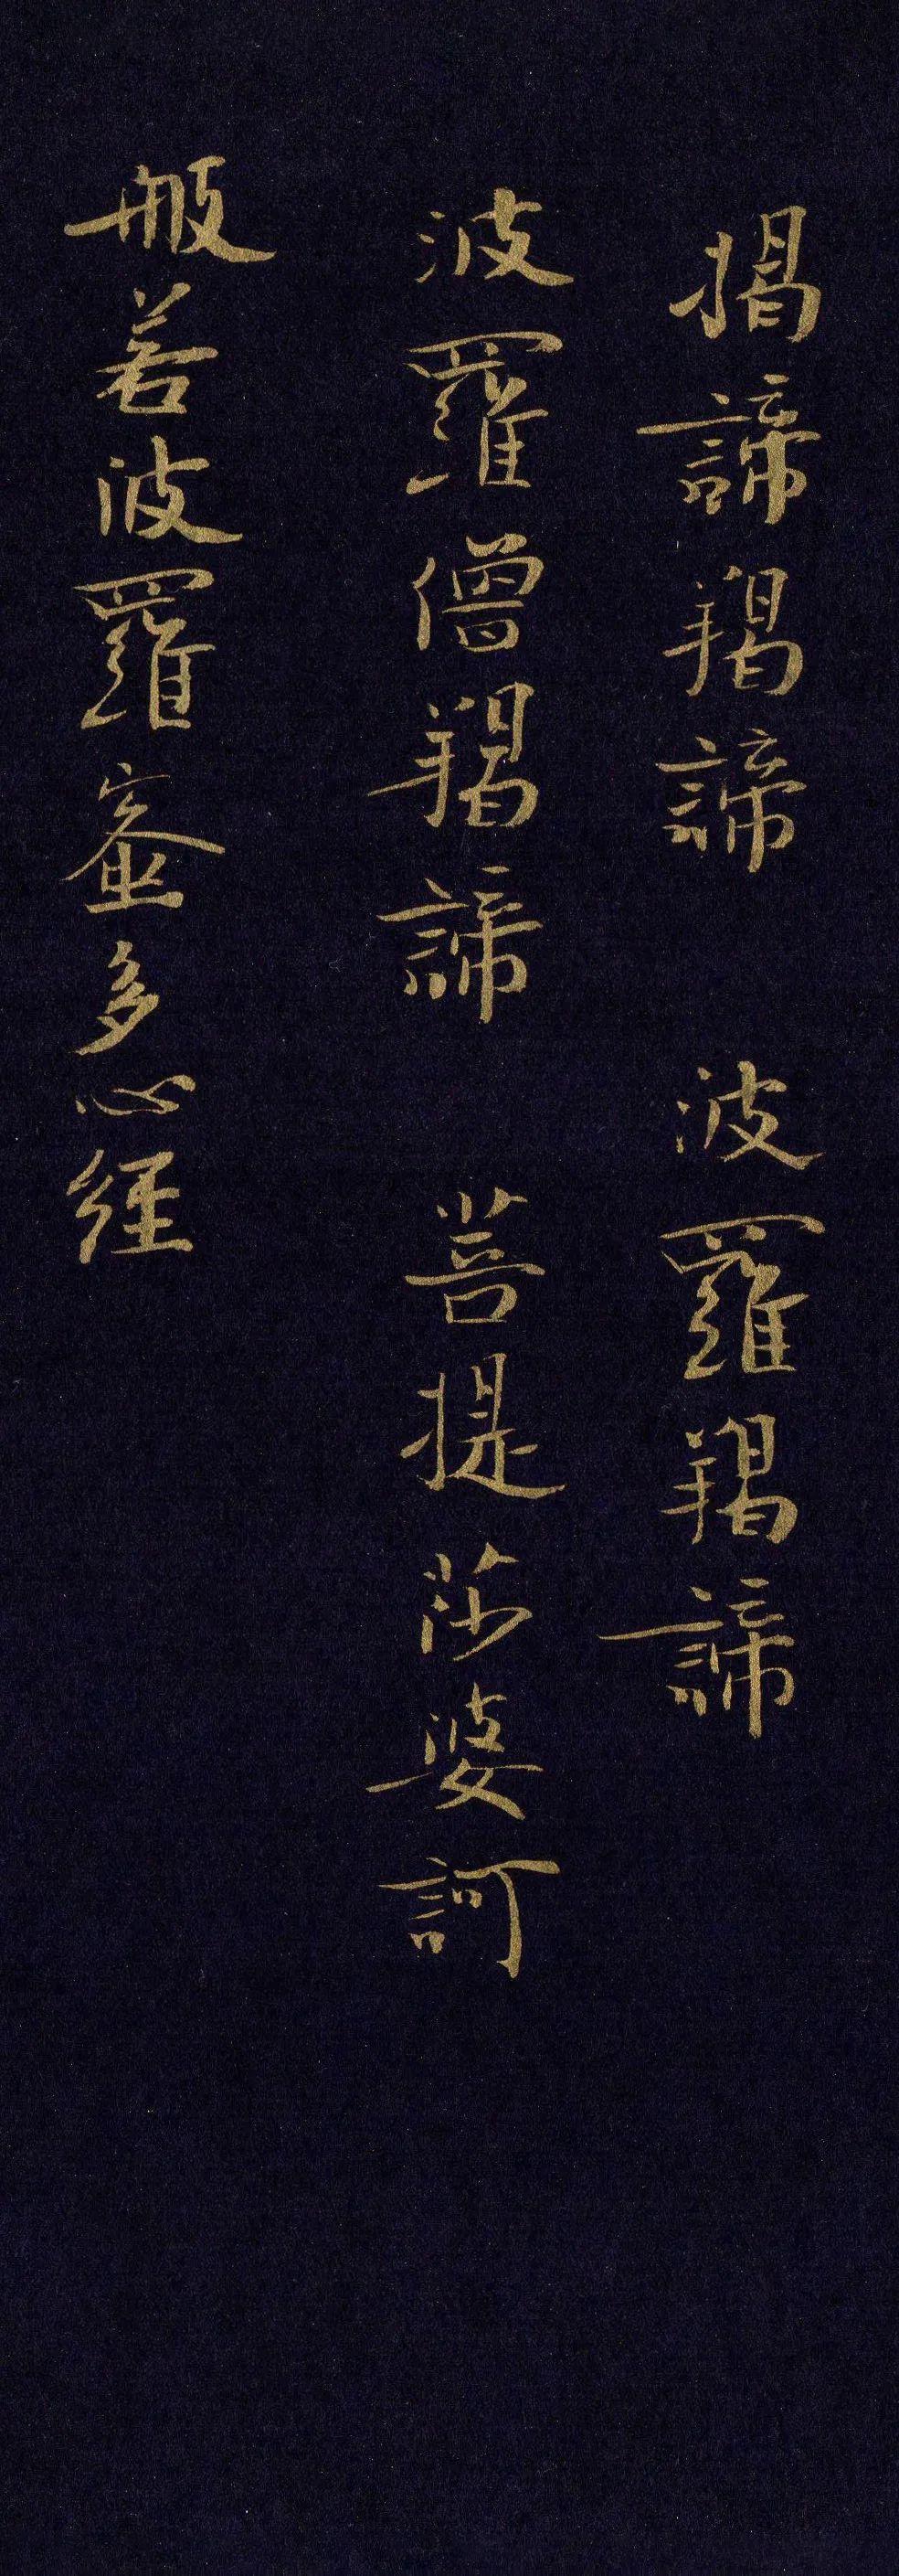 揭諦羯諦　波羅羯諦
波羅僧羯諦　菩提莎婆訶
般若波羅蜜多心経